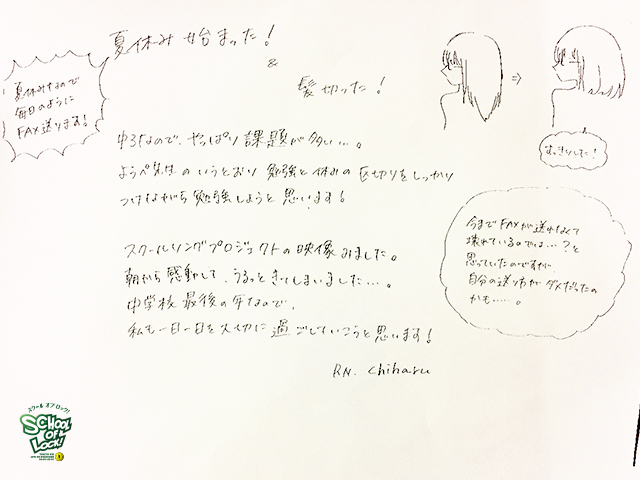 夏休み始まった！
&
髪切った！
夏休みなので
毎日のように
FAX送ります！
⇒
すっきりした！
中3なので、やっぱり課題が多い…。
ようぺ先生のいうとおり勉強と休みの区切りをしっかり
つけながら勉強しようと思います！
今までFAXが送れなくて
壊れているのでは…？と
思っていたのですが、
自分の送り方がダメだったの
かも……。
スクールソングプロジェクトの映像みました。
朝から感動して、うるっときてしまいました…。
中学校最後の年なので、
私も一日一日を大切に過ごしていこうと思います！
RN. chiharu
スクール オブ ロック！
SCHOOL
OF
LOCK!